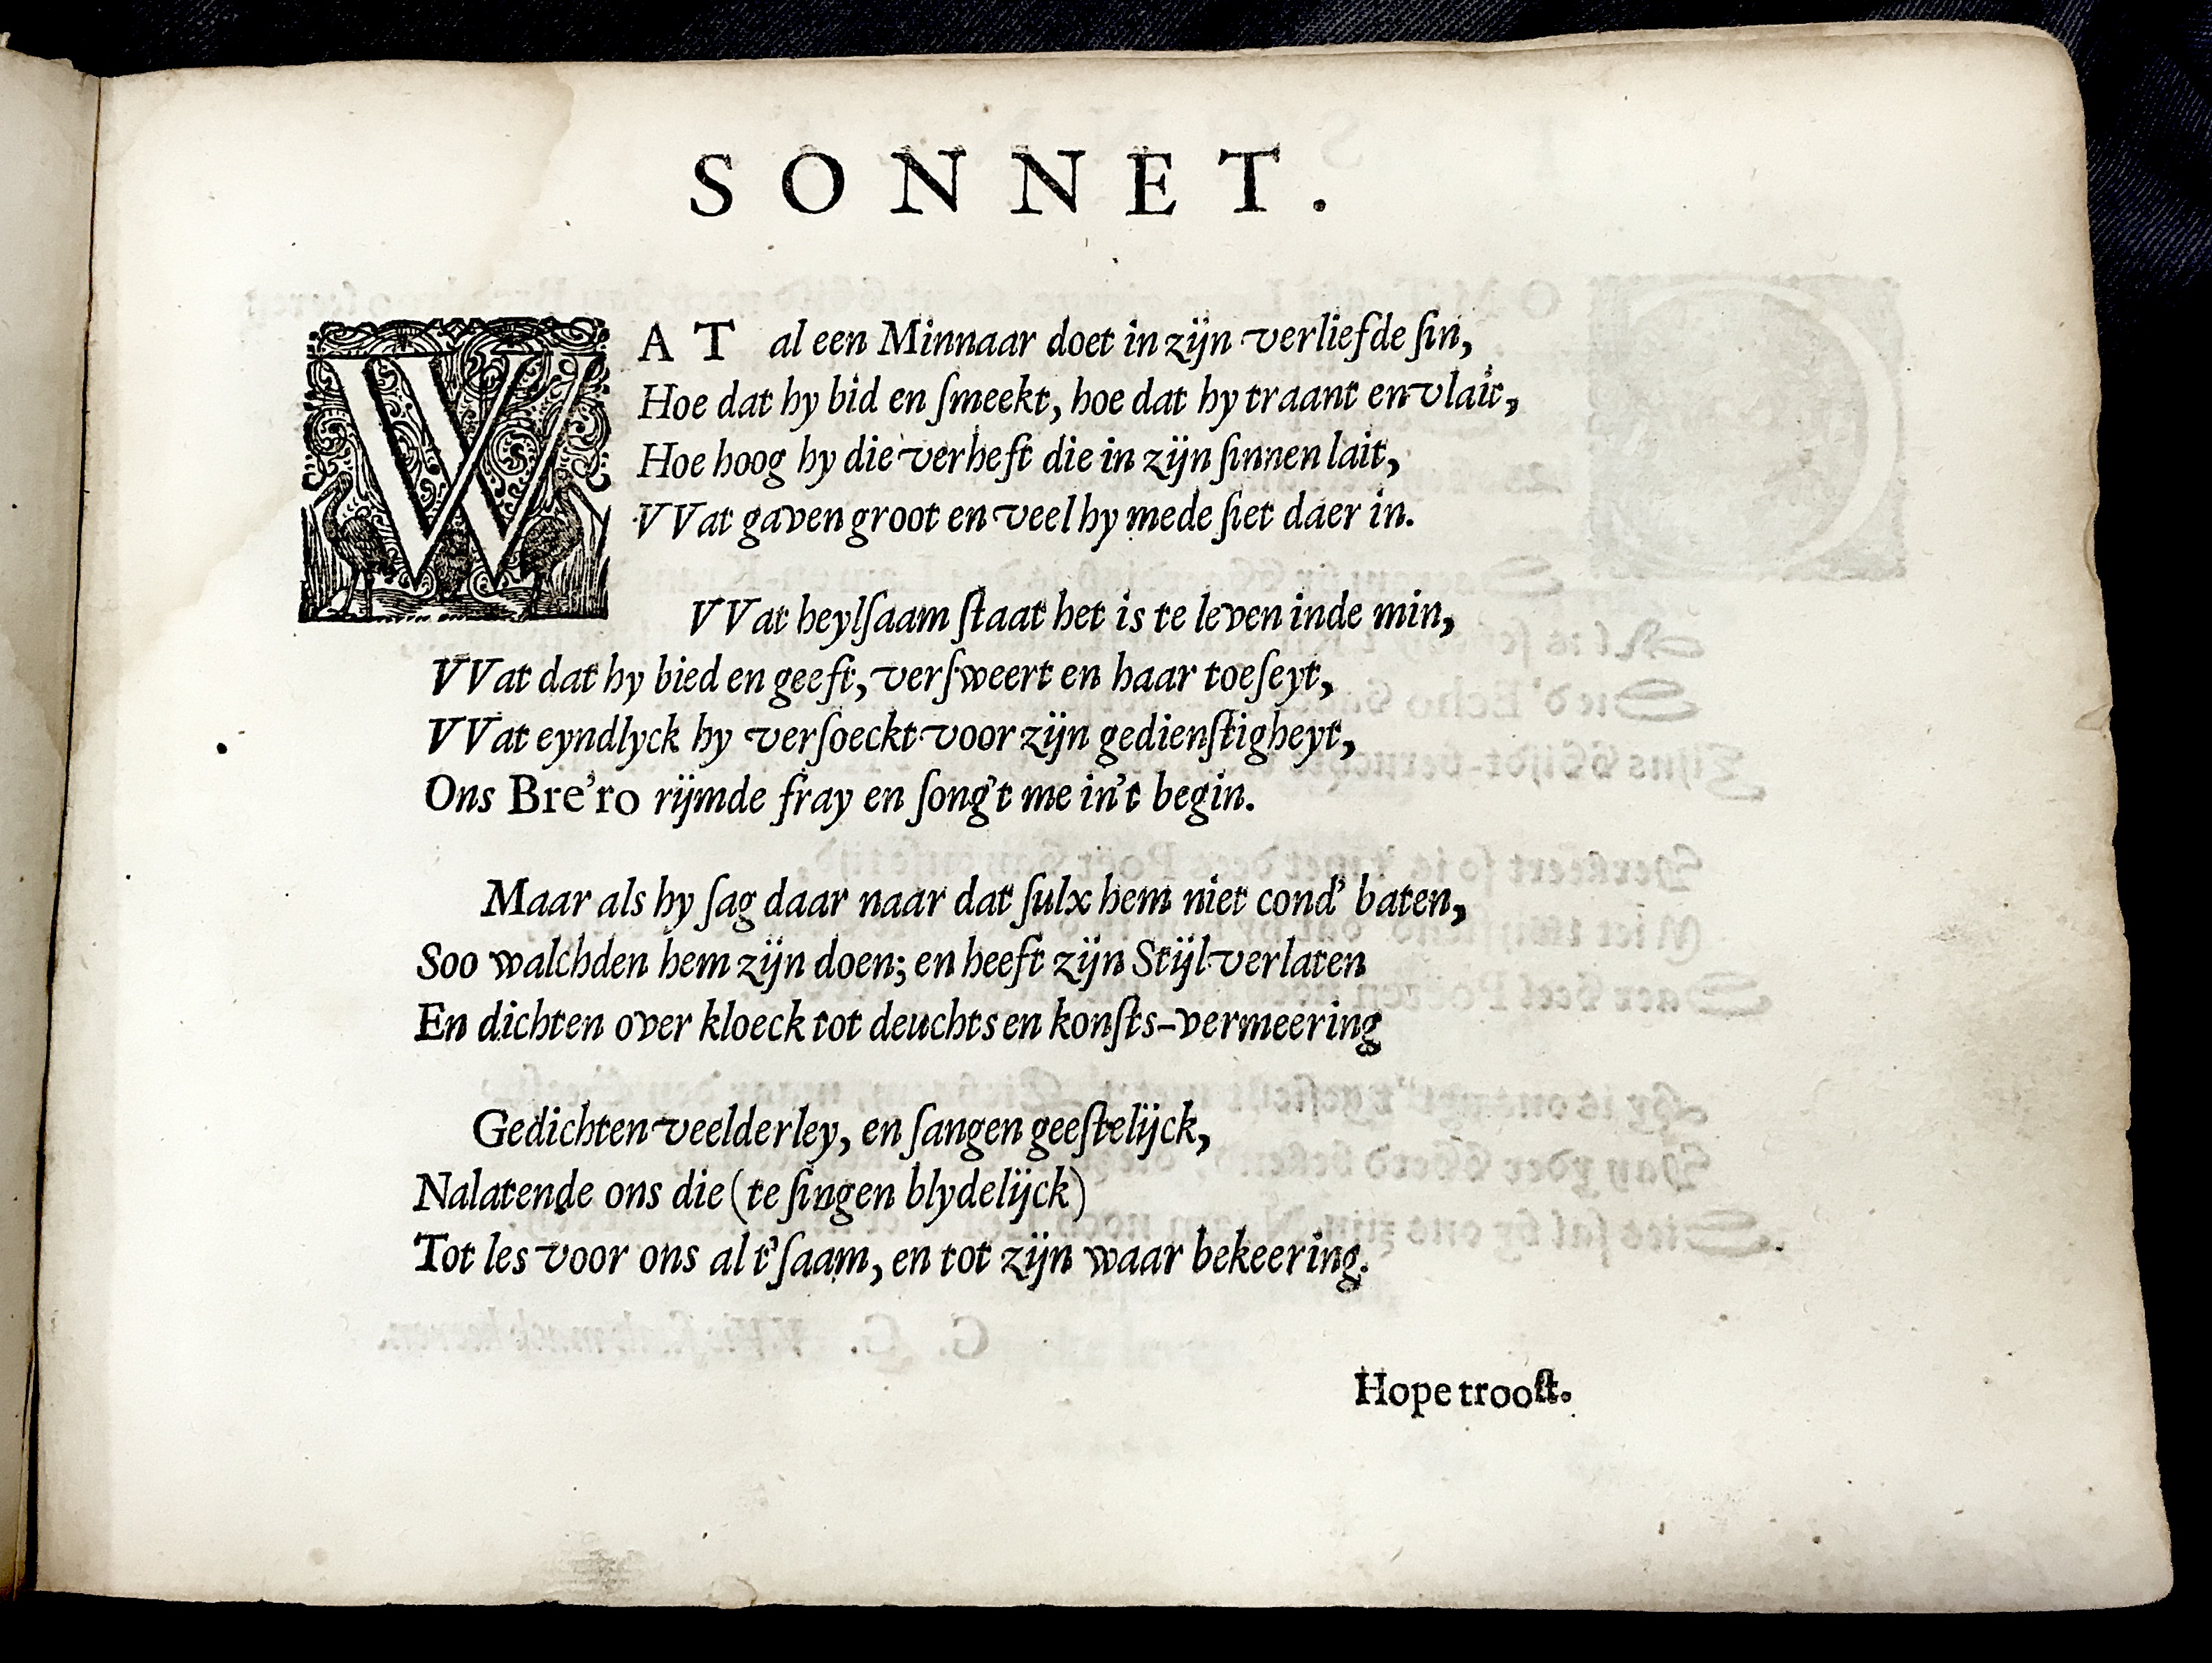 SONNET.
WAT al een Minnaar doet in zijn verliefde ſin,
Hoe dat hy bid en ſmeekt, hoe dat hy traant en vlait,
Hoe hoog hy die verheft die in zijn ſinnen lait,
VVat gaven groot en veel hy mede ſiet daer in.
VVat heylſaam ſtaat het is te leven inde min,
VVat dat hy bied en geeft, verſweert en haar toeſeyt,
VVat eyndlyck hy verſoeckt voor zijn gedienſtigheyt,
Ons Bre'ro rijmde fray en ſong't me in't begin.
Maar als hy ſag daar naar dat ſulx hem niet cond' baten,
Soo walchden hem zijn doen; en heeft zijn Stijl verlaten
En dichten over kloeck tot deuchts en konſts-vermeering
Gedichten veelderley, en ſangen geeſtelijck,
Nalatende ons die (te ſingen blydelijck)
Tot les voor ons al t'ſaam, en tot zijn waar bekeering.
Hope trooſt.